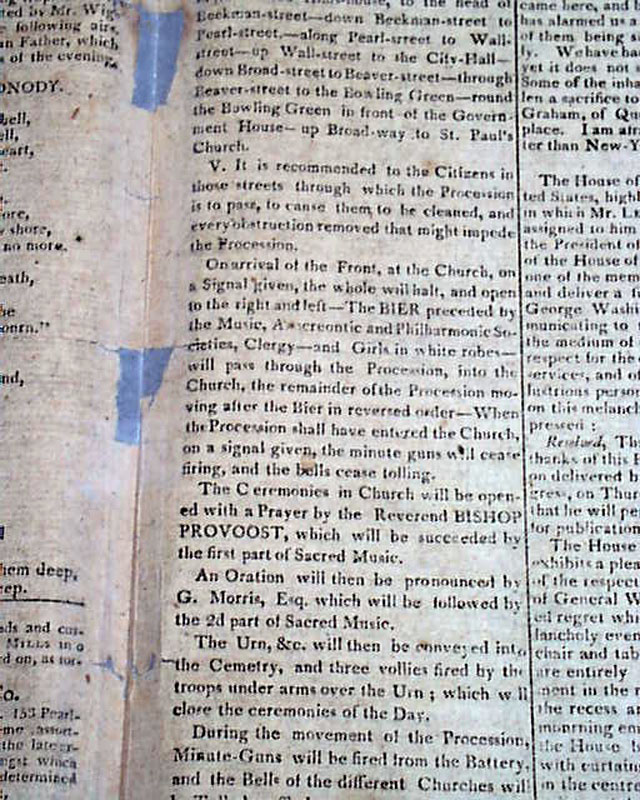 ted by Mr. Wig-
e following airs,
an Father, which
s of the evening,
ONODY.
bell,
ell,
eart,
ore,
shore,
no more.
eath,
he
ourn."
nd,
hem deep,
eep.
ads and cur-
MILLS in o
rd on, as for-
CO.
153 Pearl-
me assort-
the later-
ngst which
determined
to the head of
Beekman-street—down Beekman-street to
Pearl-street,—along Pearl-srreet to Wall-
street—up Wall-street to the City-Hall—
down Broad-street to Beaver-street—through
Beaver-street to the Bowling Green—round
the Bowling Green in front of the Govern-
ment House—up Broad-way to St. Paul's
Church.
V. It is recommended to the Citizens in
those streets through which the Procession
is to pass, to cause them to be cleaned, and
every obstruction removed that might impede
the Procession.
On arrival of the Front, at the Church, on
a Signal given, the whole will halt, and open
to the right and left—The BIER preceded by
the Music, Anacreontic and Philharmonic So-
cieties, Clergy—and Girls in white robes—
will pass through the Procession, into the
Church, the remainder of the Procession mo-
ving after the Bier in reversed order—When
the Procession shall have entered the Church,
on a signal given, the minute guns will cease
firing, and the bells cease tolling.
The Ceremonies in Church will be open-
ed with a Prayer by the Reverend BISHOP
PROVOOST, which will be succeeded by
the first part of Sacred Music.
An Oration will then be pronounced by
G. Morris, Esq. which will be followed by
the 2d part of Sacred Music.
The Urn, &c. will then be conveyed into
the Cemetry, and three vollies fired by the
troops under arms over the Urn; which will
close the ceremonies of the Day.
During the movement of the Procession,
Minute-Guns will be fired from the Battery,
and the Bells of the different Churches will
came here, and
has alarmed us a
of them being s
ly. We have ha
yet it does not
Some of the inha
len a sacrifice to
Graham, of Qu
place. I am afr
ter than New-Y
The House of
ted States, highl
in which Mr. L
assigned to him
the President of
of the House of
one of the mem
and deliver a f
George Washi
municating to
the medium of
respect for the
services, and of
lustrious perso
on this melanc
pressed:
Resolved, Th
thanks of this H
on delivered b
gress, on Thur
that he will pe
for publication
The House
exhibits a plea
of the respect
of General W
ed regret wh
lancholy even
chair and tab
are entirely
ment in the
the recess an
mourning em
the House h
with curtain
in the centr